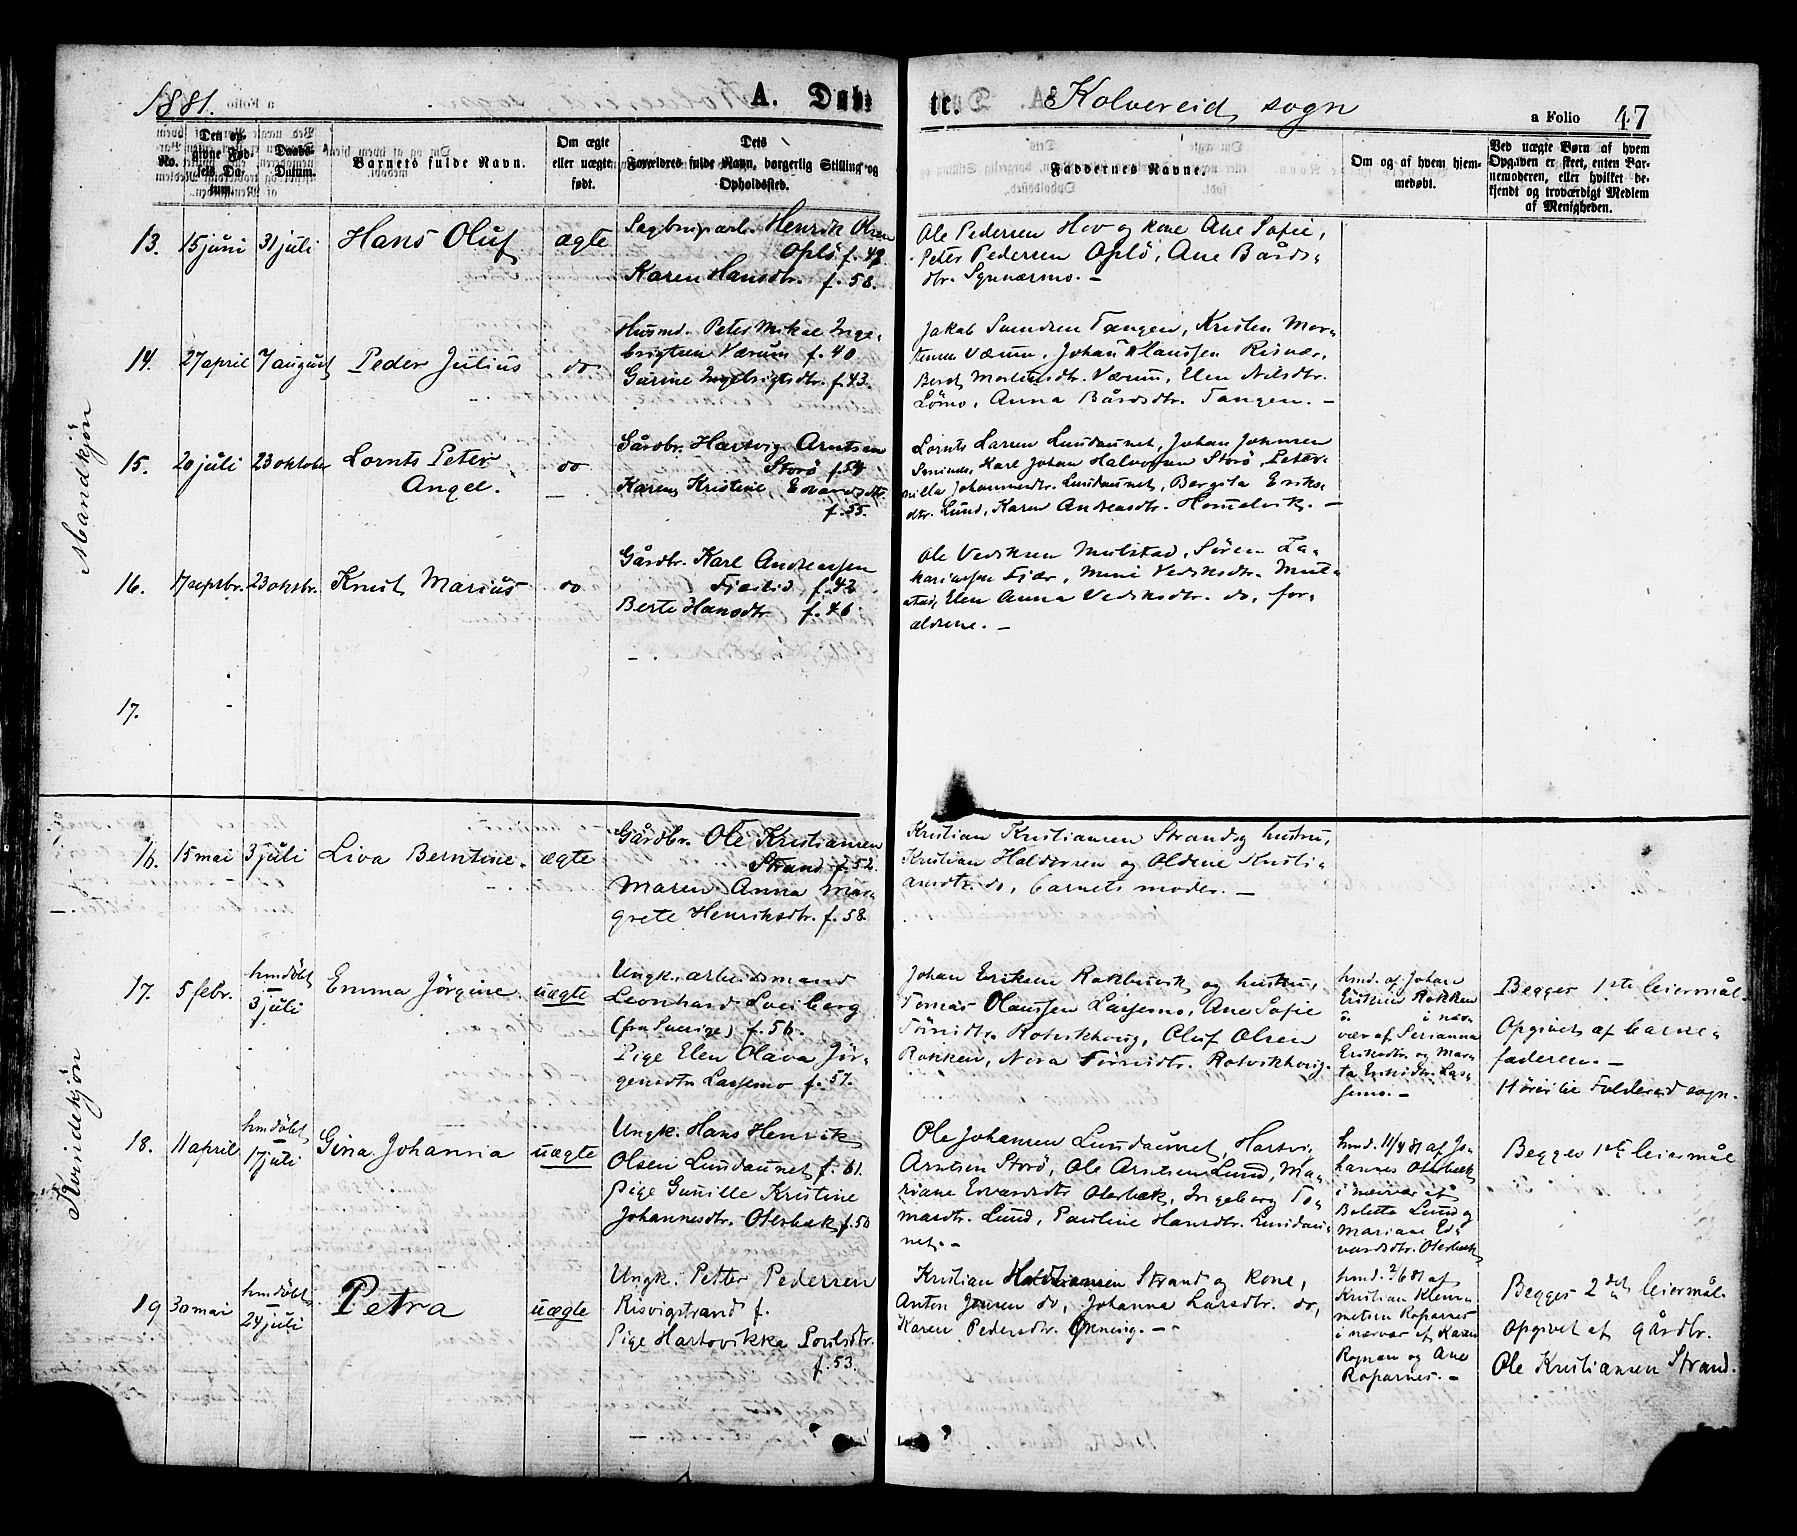 1881.
A. Døbte.
Kolvereid sogn
a Folio 47
No.
Den opgivne Fødsels Datum.
Daabs-Datum.
Barnets fulde Navn.
Om ægte eller uægte født.
Dets Forældres fulde Navn, borgerlig Stilling og Opholdssted.
Faddernes Navne.
Om og af hvem hjemmedøbt.
Ved uægte Børn af hvem Opgaven er skeet, enten Barnemoderen, eller hvilket bekjendt og troværdigt Medlem af Menigheden.
Mandkjön
13. 15 juni 31 juli Hans Oluf ægte
Sagbrugsarb. Henrik Olsen
Oplö f. 49.
Karen Hansdtr. f. 58.
Ole Pedersen Hov og kone Ane Sofie,
Peter Pedersen Oplö, Ane Bårds-
dtr. Synnærmo. –
14. 27 april 7 august Peder Julius do
Husmd. Peter Mikal Inge-
brigtsen Værum f. 40
Gurine Ingebrigtsdtr. f. 43.
Jakob Svendsen Tangen, Kristen Mor-
tensen Værum, Johan Hanssen Risvær,
Berit Mortensdtr. Værum, Elen Nilsdtr.
Lömo, Anna Bårdsdtr. Tangen. –
15. 20 juli 23 oktober Lornts Peter
Angel. do
Gårdbr. Hartvig Arntsen
Storö f. 54
Karen Kristine Edvardsdtr.
f. 55.
Lornts Larsen Lundaunet, Johan Johnsen
Karl Johan Halvorsen Storö, Peter-
nilla Johannesdtr. Lundaunet, Bergita Eriks-
dtr. Lund, Karen Andreasdtr. –
16. 17 septbr. 23 oktbr. Knut Marius do
Gårdbr. Karl Andreassen
Fjærlid f. 42
Berte Hansdtr f. 46.
Ole Vediksen Mulstad, Sören Za-
kariassen Fjær, Mini Vediksdtr. Mul-
stad, Elen Anna Vediksdtr. do, for-
ældrene. –
17.
Kvindekjön
16. 15 mai 3 juli Liva Berntine. ægte
Gårdbr. Ole Kristiansen
Strand f. 52.
Maren Anna Mar-
grete Henriksdtr. f. 58.
Kristian Kristiansen Strand og hustru,
Kristian Haldorsen og Oldine Kristi-
ansdtr. do, barnets moder. –
17. 5 febr. hmdöbt
3 juli Emma Jörgine. uægte
Ungk. arbeidsmand
Leonhard Sveiberg
(fra Sverige) f. 56.
Pige Elen Olava Jör-
gensdtr Lassemo f. 57.
Johan Eriksen Rokken og hustru,
Tomas Olaussen Lassemo, Ane Sofie
Oluf Olsen
Rokken, Nora
hmd. af Johan
Eriksen Rokken
i nær-
vær af Serianna
Eriksdtr. og Mar-
ta Eriksdtr. Las-
semo. –
Begges 1ste leiermål.
Opgivet af barne-
faderen. –
Hörer til Foldereid sogn.
18. 11 april hmdöbt
17 juli Gina Johanna uægte
Ungk. Hans Henrik
Olsen Lundaunet f. 61.
Pige Gunille Kristine
Johannesdtr. Oterbæk f. 50
Ole Johansen Lundaunet, Hartvi-
Arntsen Storö, Ole Arntsen Lund, Ma-
riane Edvardsdtr Oterbæk, Ingeborg To-
masdtr. Lund, Pauline Hansdtr. Lundau-
net. –
hmd. 11/4 81 af Jo-
hannes Oterbæk
i nærvær af
Bolette Lund og
Mariane Ed-
vardsdtr. Oterbæk
Begges 1ste leiermål
19 30 mai hmdöbt
24 juli Petra uægte
Ungk. Petter Pedersen
Risvigstrand f.
Pige Hartvikka Poulsdtr.
f. 53.
Kristian Strand og kone,
Anton Jensen do, Johanna Larsdtr. do,
Karen Pedersdtr. Ökning. –
hmd. 2/6 81 af
Kristian Klem-
metsen Roparnes
i nærvær af Karen
og Ane
Roparnes. –
Begges 2det leiermål.
Opgivet af gårdbr.
Ole Kristiansen Strand.